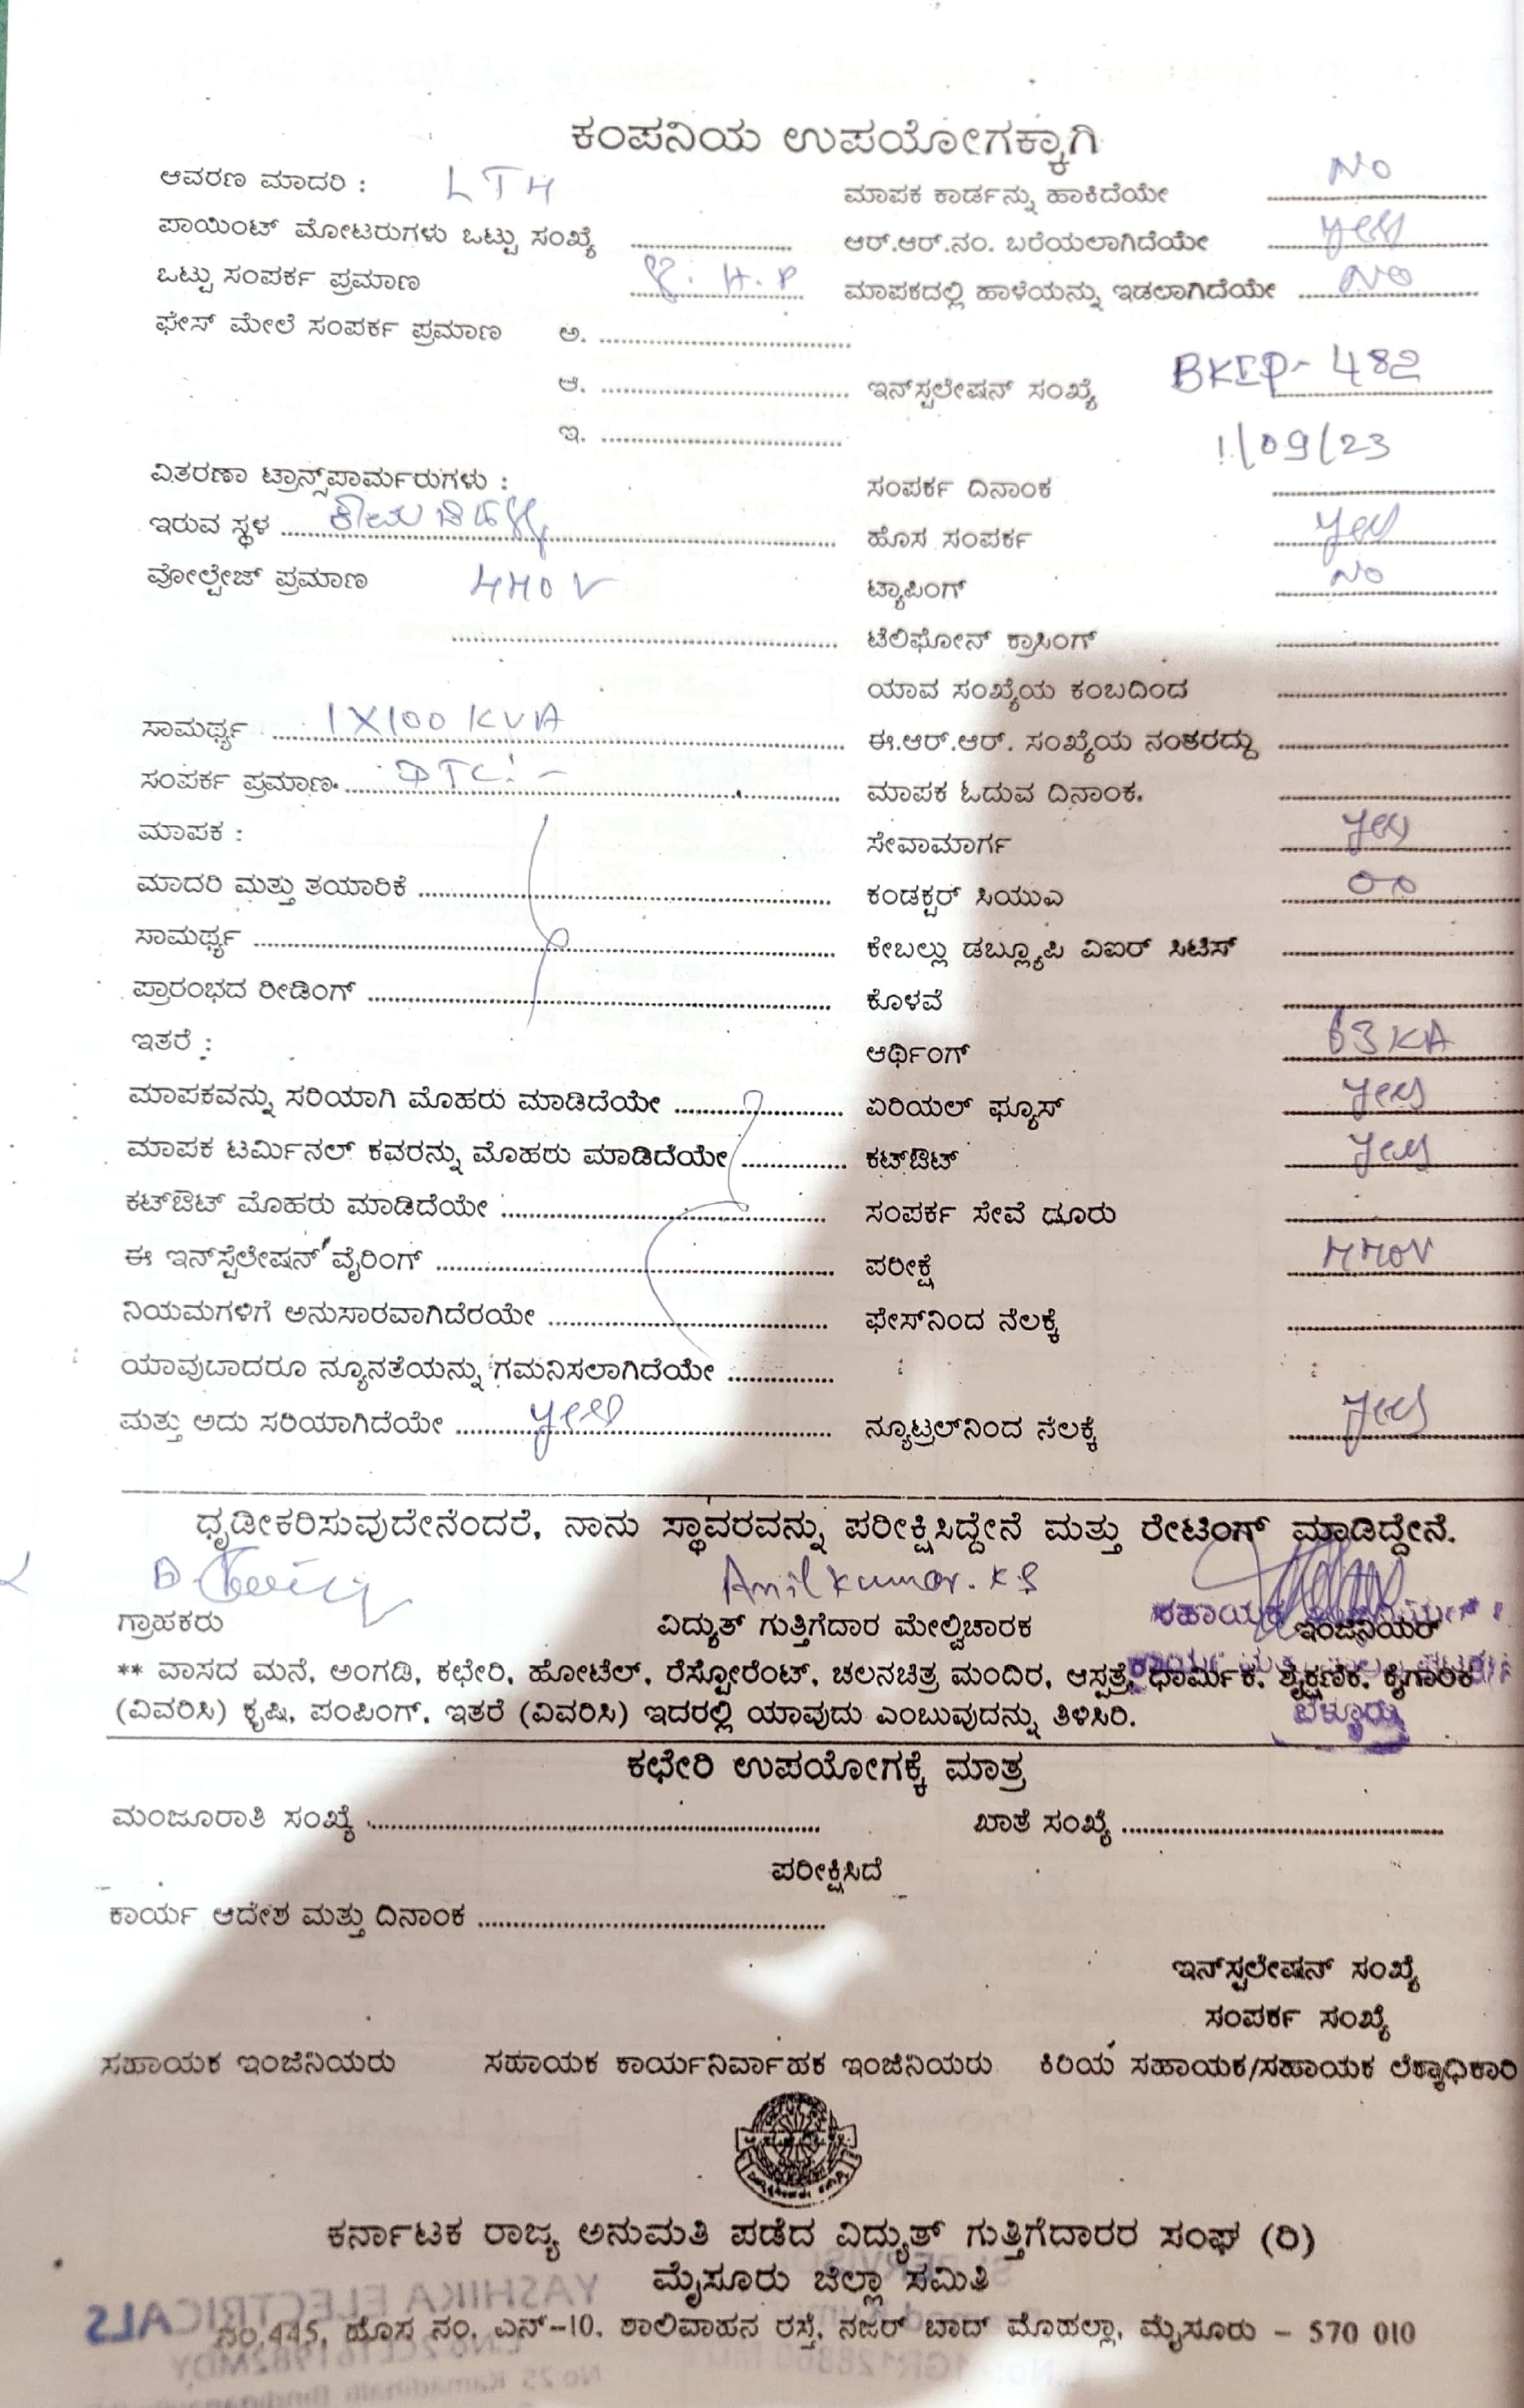 ಕಂಪನಿಯ ಉಪಯೋಗಕ್ಕಾಗಿ
ಆವರಣ ಮಾದರಿ : LT4 ಮಾಪಕ ಕಾರ್ಡನ್ನು ಹಾಕಿದೆಯೇ No
ಪಾಯಿಂಟ್ ಮೋಟರುಗಳು ಒಟ್ಟು ಸಂಖ್ಯೆ ಆರ್.ಆರ್.ನಂ. ಬರೆಯಲಾಗಿದೆಯೇ yes
ಒಟ್ಟು ಸಂಪರ್ಕ ಪ್ರಮಾಣ H.P ಮಾಪಕದಲ್ಲಿ ಹಾಳೆಯನ್ನು ಇಡಲಾಗಿದೆಯೇ No
ಫೇಸ್ ಮೇಲೆ ಸಂಪರ್ಕ ಪ್ರಮಾಣ ಅ.
ಆ. ಇನ್‌ಸ್ಟಲೇಷನ್ ಸಂಖ್ಯೆ BKIP-482
ಇ. 1/09/23
ವಿತರಣಾ ಟ್ರಾನ್ಸ್‌ಪಾರ್ಮರುಗಳು : ಸಂಪರ್ಕ ದಿನಾಂಕ
ಇರುವ ಸ್ಥಳ ಹೊಸ ಸಂಪರ್ಕ yes
ವೋಲ್ಟೇಜ್ ಪ್ರಮಾಣ 440V ಟ್ಯಾಪಿಂಗ್ No
ಟೆಲಿಫೋನ್ ಕ್ರಾಸಿಂಗ್
ಯಾವ ಸಂಖ್ಯೆಯ ಕಂಬದಿಂದ
ಸಾಮರ್ಥ್ಯ 1X100 KVA ಈ.ಆರ್.ಆರ್. ಸಂಖ್ಯೆಯ ನಂತರದ್ದು
ಸಂಪರ್ಕ ಪ್ರಮಾಣ. DTC:- ಮಾಪಕ ಓದುವ ದಿನಾಂಕ.
ಮಾಪಕ : ಸೇವಾಮಾರ್ಗ yes
ಮಾದರಿ ಮತ್ತು ತಯಾರಿಕೆ ಕಂಡಕ್ಟರ್ ಸಿಯುಎ
ಸಾಮರ್ಥ್ಯ ಕೇಬಲ್ಲು ಡಬ್ಲ್ಯೂಪಿ ವಿಐರ್ ಸಿಟಿಸ್
ಪ್ರಾರಂಭದ ರೀಡಿಂಗ್ ಕೊಳವೆ
ಇತರೆ : ಆರ್ಥಿಂಗ್ 63 KA
ಮಾಪಕವನ್ನು ಸರಿಯಾಗಿ ಮೊಹರು ಮಾಡಿದೆಯೇ ಏರಿಯಲ್ ಫ್ಯೂಸ್ yes
ಮಾಪಕ ಟರ್ಮಿನಲ್ ಕವರನ್ನು ಮೊಹರು ಮಾಡಿದೆಯೇ ಕಟ್‌ಔಟ್ yes
ಕಟ್‌ಔಟ್ ಮೊಹರು ಮಾಡಿದೆಯೇ ಸಂಪರ್ಕ ಸೇವೆ ಡೂರು
ಈ ಇನ್‌ಸ್ಟೆಲೇಷನ್ ವೈರಿಂಗ್ ಪರೀಕ್ಷೆ 440V
ನಿಯಮಗಳಿಗೆ ಅನುಸಾರವಾಗಿದೆರಯೇ ಫೇಸ್‌ನಿಂದ ನೆಲಕ್ಕೆ
ಯಾವುಬಾದರೂ ನ್ಯೂನತೆಯನ್ನು ಗಮನಿಸಲಾಗಿದೆಯೇ
ಮತ್ತು ಅದು ಸರಿಯಾಗಿದೆಯೇ yes ನ್ಯೂಟ್ರಲ್‌ನಿಂದ ನೆಲಕ್ಕೆ yes
ಧೃಡೀಕರಿಸುವುದೇನೆಂದರೆ, ನಾನು ಸ್ಥಾವರವನ್ನು ಪರೀಕ್ಷಿಸಿದ್ದೇನೆ ಮತ್ತು ರೇಟಿಂಗ್ ಮಾಡಿದ್ದೇನೆ.
Anil Kumar. K S
ಗ್ರಾಹಕರು ವಿದ್ಯುತ್ ಗುತ್ತಿಗೆದಾರ ಮೇಲ್ವಿಚಾರಕ ಸಹಾಯಕ ಇಂಜಿನಿಯರ್
** ವಾಸದ ಮನೆ, ಅಂಗಡಿ, ಕಛೇರಿ, ಹೋಟೆಲ್, ರೆಸ್ಟೋರೆಂಟ್, ಚಲನಚಿತ್ರ ಮಂದಿರ, ಆಸ್ಪತ್ರೆ, ಧಾರ್ಮಿಕ, ಶೈಕ್ಷಣಿಕ, ಕೈಗಾರಿಕ
(ವಿವರಿಸಿ) ಕೃಷಿ, ಪಂಪಿಂಗ್, ಇತರೆ (ವಿವರಿಸಿ) ಇದರಲ್ಲಿ ಯಾವುದು ಎಂಬುವುದನ್ನು ತಿಳಿಸಿರಿ. ಬೆಳ್ಳೂರು
ಕಛೇರಿ ಉಪಯೋಗಕ್ಕೆ ಮಾತ್ರ
ಮಂಜೂರಾತಿ ಸಂಖ್ಯೆ ಖಾತೆ ಸಂಖ್ಯೆ
ಪರೀಕ್ಷಿಸಿದೆ
ಕಾರ್ಯ ಆದೇಶ ಮತ್ತು ದಿನಾಂಕ
ಇನ್‌ಸ್ಟಲೇಷನ್ ಸಂಖ್ಯೆ
ಸಂಪರ್ಕ ಸಂಖ್ಯೆ
ಸಹಾಯಕ ಇಂಜಿನಿಯರು ಸಹಾಯಕ ಕಾರ್ಯನಿರ್ವಾಹಕ ಇಂಜಿನಿಯರು ಕಿರಿಯ ಸಹಾಯಕ/ಸಹಾಯಕ ಲೆಕ್ಕಾಧಿಕಾರಿ
ಕರ್ನಾಟಕ ರಾಜ್ಯ ಅನುಮತಿ ಪಡೆದ ವಿದ್ಯುತ್ ಗುತ್ತಿಗೆದಾರರ ಸಂಘ (ರಿ)
ಮೈಸೂರು ಜಿಲ್ಲಾ ಸಮಿತಿ
YASHIKA ELECTRICALS
ನಂ.445, ಹೊಸ ನಂ. ಎನ್-10, ಶಾಲಿವಾಹನ ರಸ್ತೆ, ನಜರ್ ಬಾದ್ ಮೊಹಲ್ಲಾ, ಮೈಸೂರು - 570 010